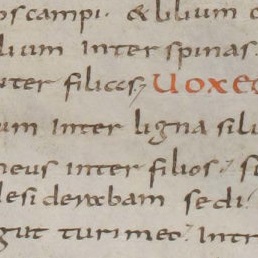 os campi· & lilium c
lium inter spinas·
nter filices; Uox ec
um inter ligna silu
meus inter filios; Su
desiderabam sedi·
gut turi meo; Intr